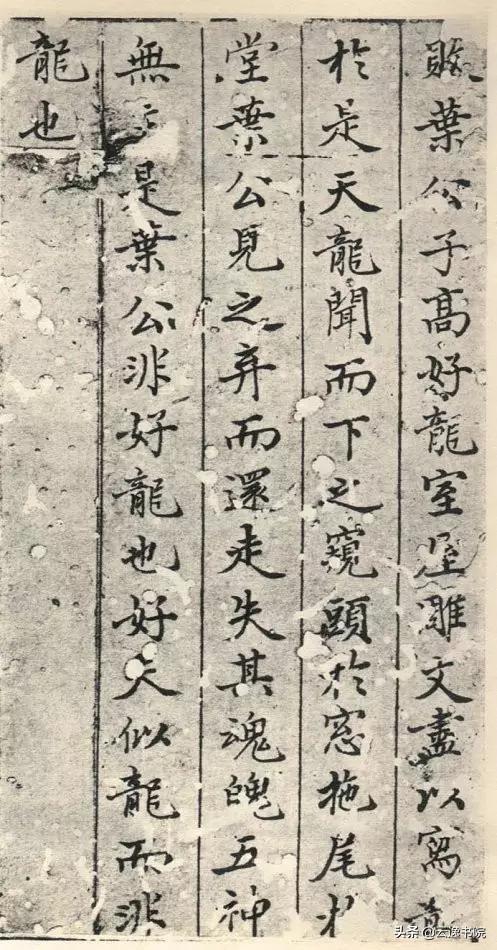 葉公子高好龍室屋雕文盡以寫
於是天龍聞而下之窺頭於窓拖尾
堂葉公見之弃而還走失其魂魄五神
無是葉公非好龍也好夫似龍而非
龍也
头条 @云逸书院